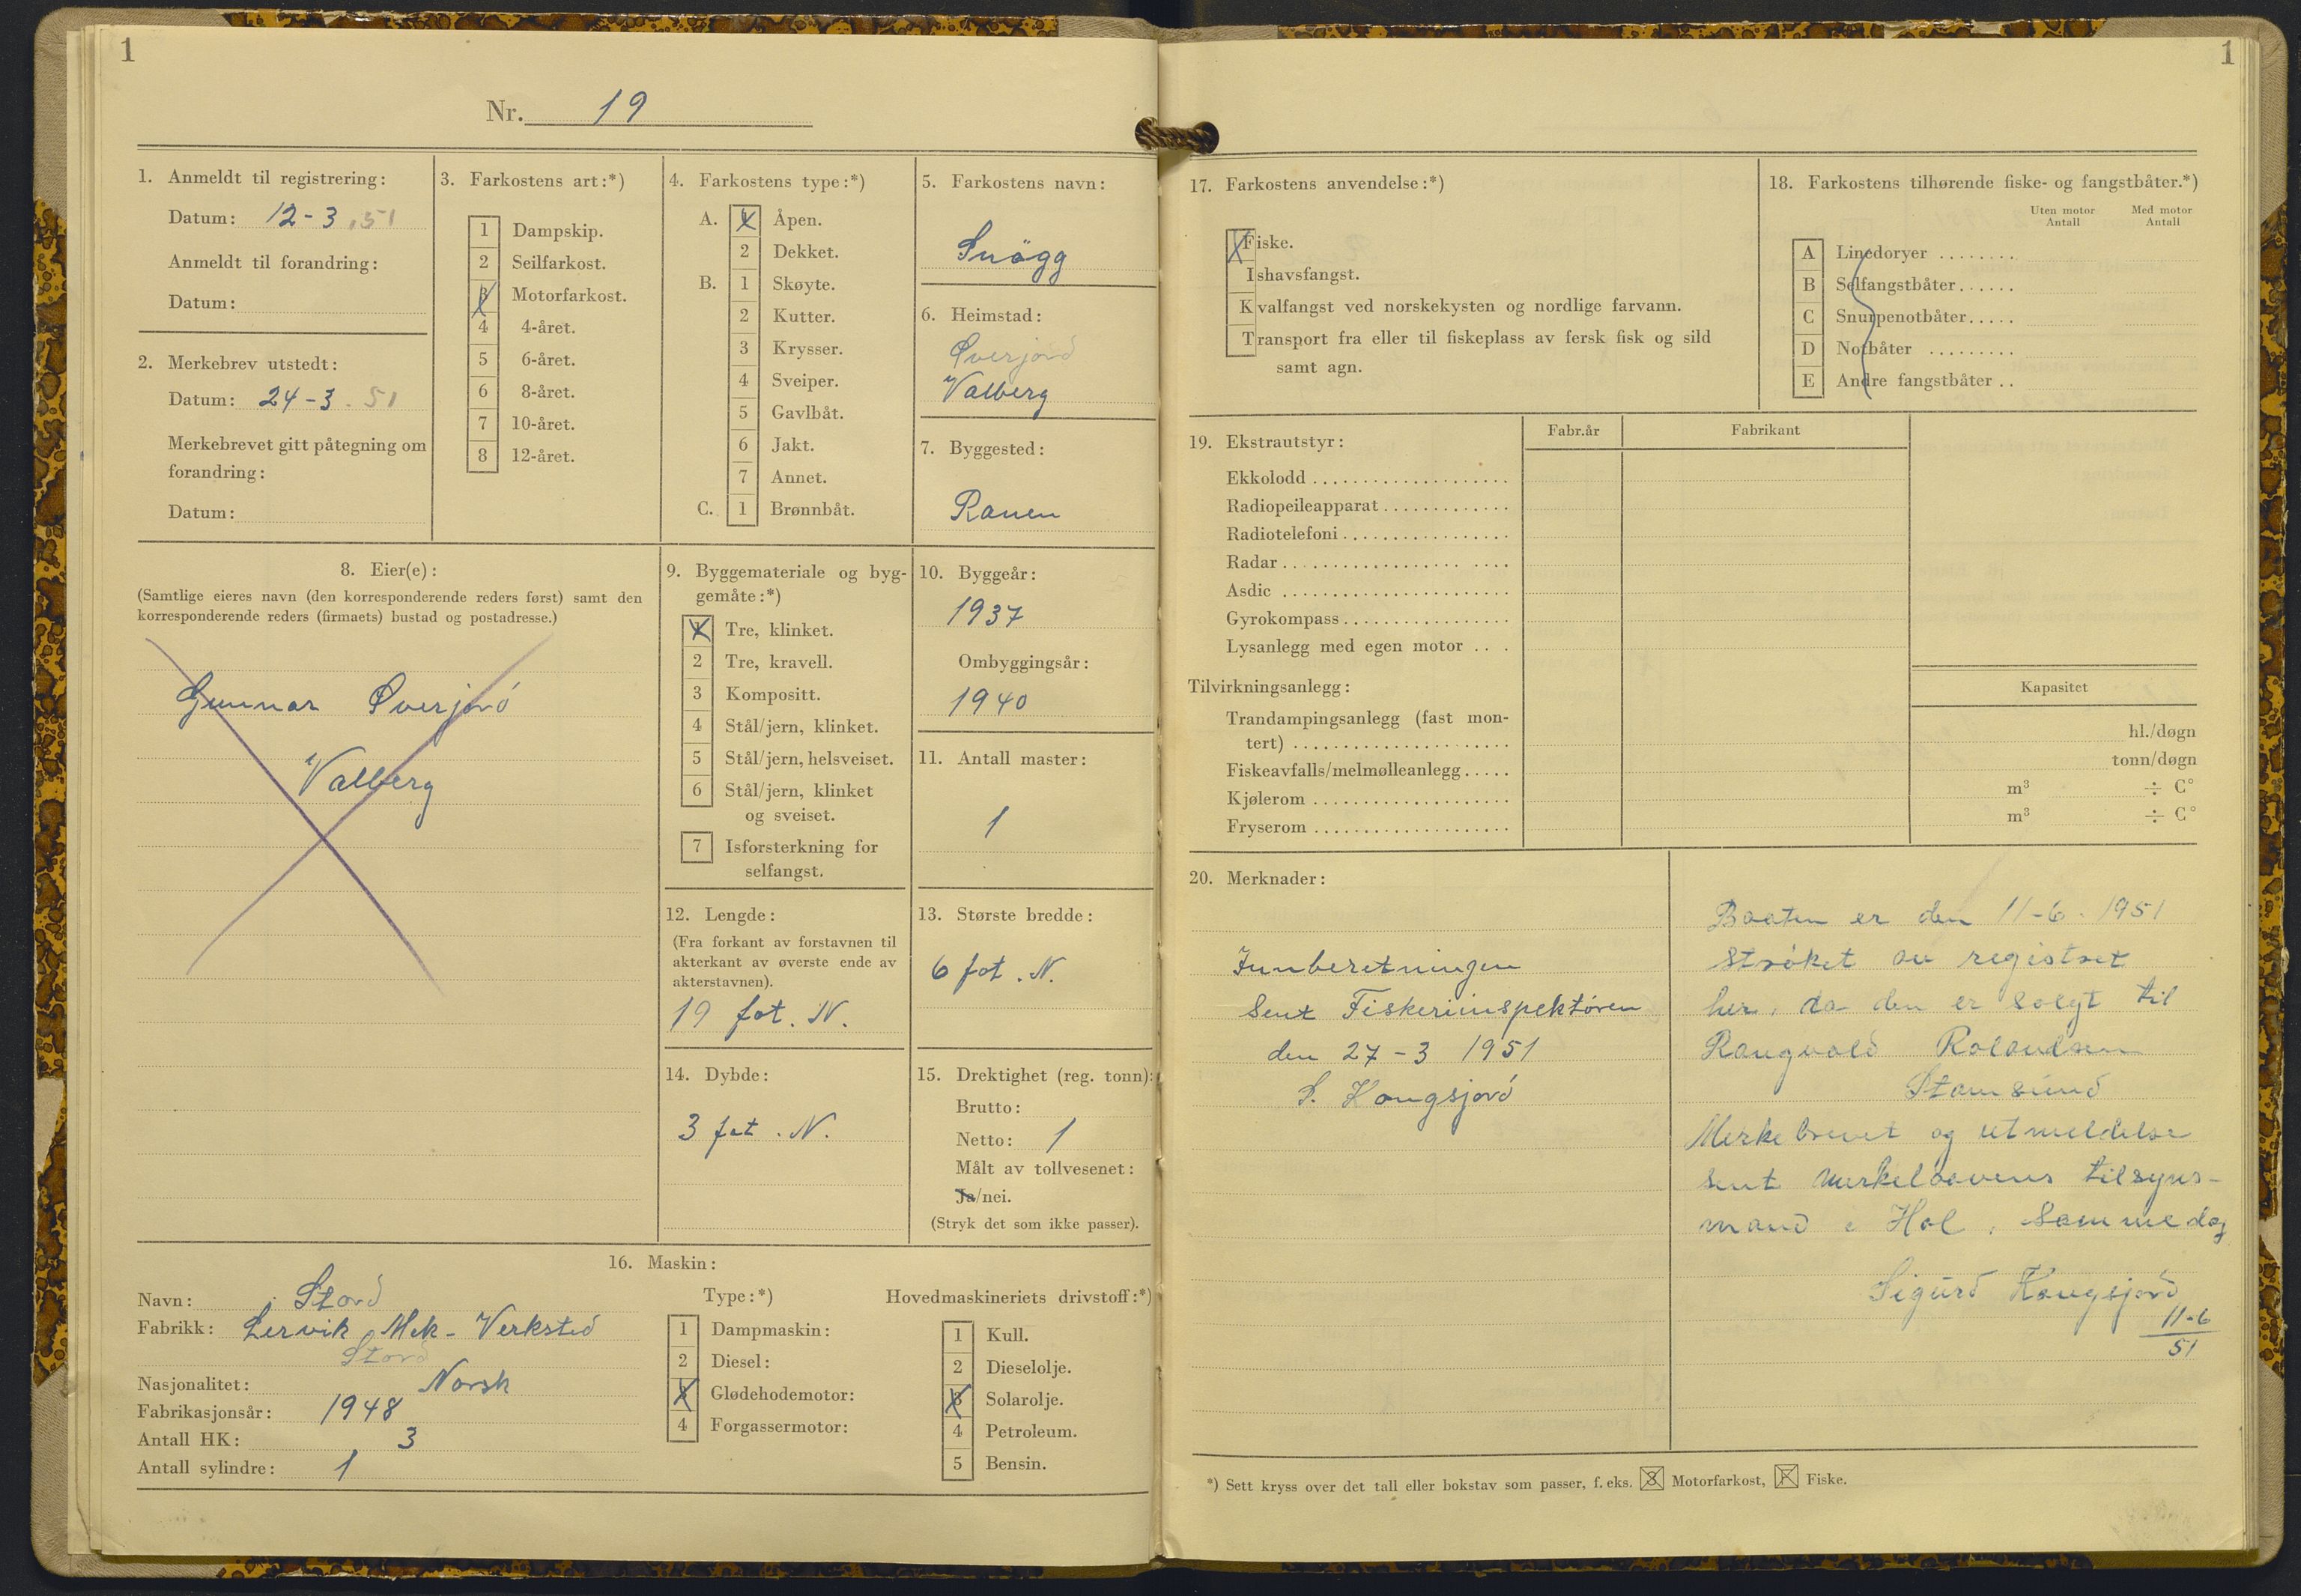 1
Nr. 19
1. Anmeldt til registrering:
Datum: 12-3.51
Anmeldt til forandring:
Datum:
2. Merkebrev utstedt:
Datum: 24-3.51
Merkebrevet gitt påtegning om
forandring:
Datum:
3. Farkostens art:*)
1 Dampskip.
2 Seilfarkost.
3 Motorfarkost.
4 4-året.
5 6-året.
6 8-året.
7 10-året.
8 12-året.
4. Farkostens type:*)
A. 1 Åpen.
2 Dekket.
B. 1 Skøyte.
2 Kutter.
3 Krysser.
4 Sveiper.
5 Gavlbåt.
6 Jakt.
7 Annet.
C. 1 Brønnbåt.
5. Farkostens navn:
Snögg
6. Heimstad:
Øverjord
Valberg
7. Byggested:
Ranen
8. Eier(e):
(Samtlige eieres navn (den korresponderende reders først) samt den
korresponderende reders (firmaets) bustad og postadresse.)
Gunnar Øverjord
Valberg
9. Byggemateriale og byg-
gemåte:*)
1 Tre, klinket.
2 Tre, kravell.
3 Kompositt.
4 Stål/jern, klinket.
5 Stål/jern, helsveiset.
6 Stål/jern, klinket
og sveiset.
7 Isforsterkning for
selfangst.
10. Byggeår:
1937
Ombyggingsår:
1940
11. Antall master:
1
12. Lengde:
(Fra forkant av forstavnen til
akterkant av øverste ende av
akterstavnen).
19 fot. N.
13. Største bredde:
6 fot. N.
14. Dybde:
3 fot. N.
15. Drektighet (reg. tonn):
Brutto:
Netto: 1
Målt av tollvesenet:
Ja/nei.
(Stryk det som ikke passer).
16. Maskin:
Navn: Stord
Fabrikk: Lervik Mek- Verksted
Stord
Nasjonalitet: Norsk
Fabrikasjonsår: 1948
Antall HK: 3
Antall sylindre: 1
Type:*)
1 Dampmaskin:
2 Diesel:
3 Glødehodemotor:
4 Forgassermotor:
Hovedmaskineriets drivstoff:*)
1 Kull.
2 Dieselolje.
3 Solarolje.
4 Petroleum.
5 Bensin.
1
17. Farkostens anvendelse:*)
Fiske.
Ishavsfangst.
Kvalfangst ved norskekysten og nordlige farvann.
Transport fra eller til fiskeplass av fersk fisk og sild
samt agn.
18. Farkostens tilhørende fiske- og fangstbåter.*)
Uten motor Med motor
Antall Antall
A Linedoryer
B Selfangstbåter
C Snurpenotbåter
D Notbåter
E Andre fangstbåter
19. Ekstrautstyr:
Fabr.år Fabrikant
Ekkolodd
Radiopeileapparat
Radiotelefoni
Radar
Asdic
Gyrokompass
Lysanlegg med egen motor
Tilvirkningsanlegg:
Kapasitet
Trandampingsanlegg (fast mon-
tert) hl./døgn
Fiskeavfalls/melmølleanlegg tonn/døgn
Kjølerom m³ ÷ C°
Fryserom m³ ÷ C°
20. Merknader:
Innberetningen
Sent Fiskeriinspektøren
den 27-3 1951
S. Kongsjord
Baaten er den 11-6. 1951
strøket av registret
her, da den er solgt til
Rangvald Rolandsen
Stamsund
Merkebrevet og utmeldelse
sent merkelovens tilsyns-
mand i Hol, samme dag
Sigurd Kongsjord
11-6
51
*) Sett kryss over det tall eller bokstav som passer, f. eks. 3 Motorfarkost, F Fiske.